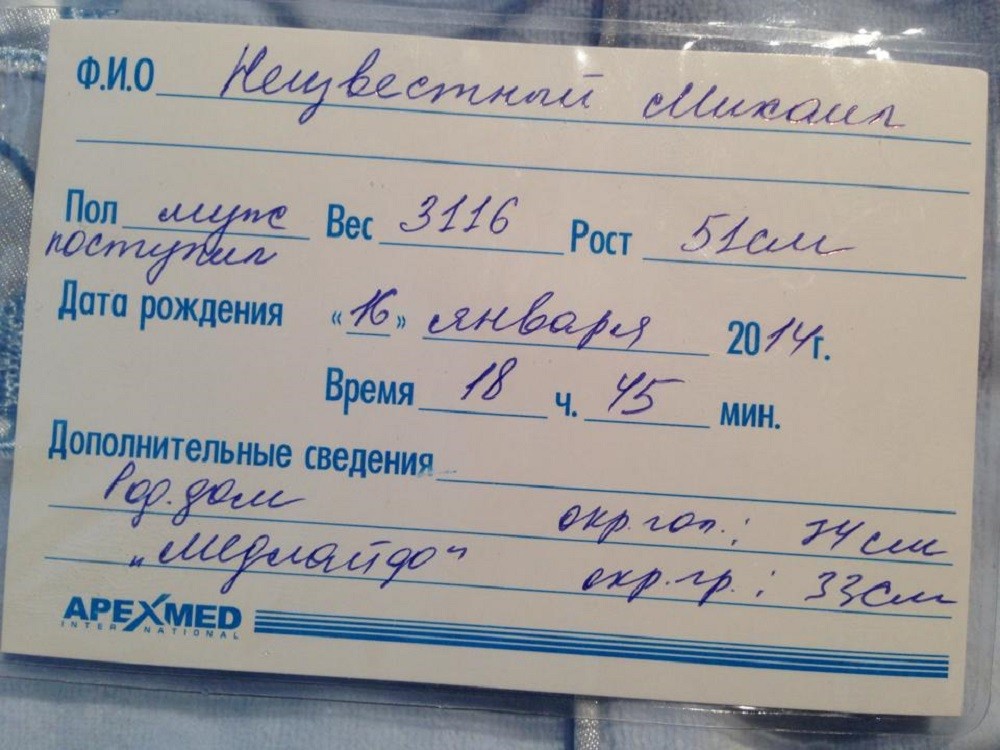 Ф.И.О Неизвестный Михаил
Пол муж Вес 3116 Рост 51см
поступил
Дата рождения «16» января 2014г.
Время 18 ч. 45 мин.
Дополнительные сведения
Род.дом окр.гол.: 34см
„Медлайф" окр.гр.: 33см
APEXMED
INTERNATIONAL